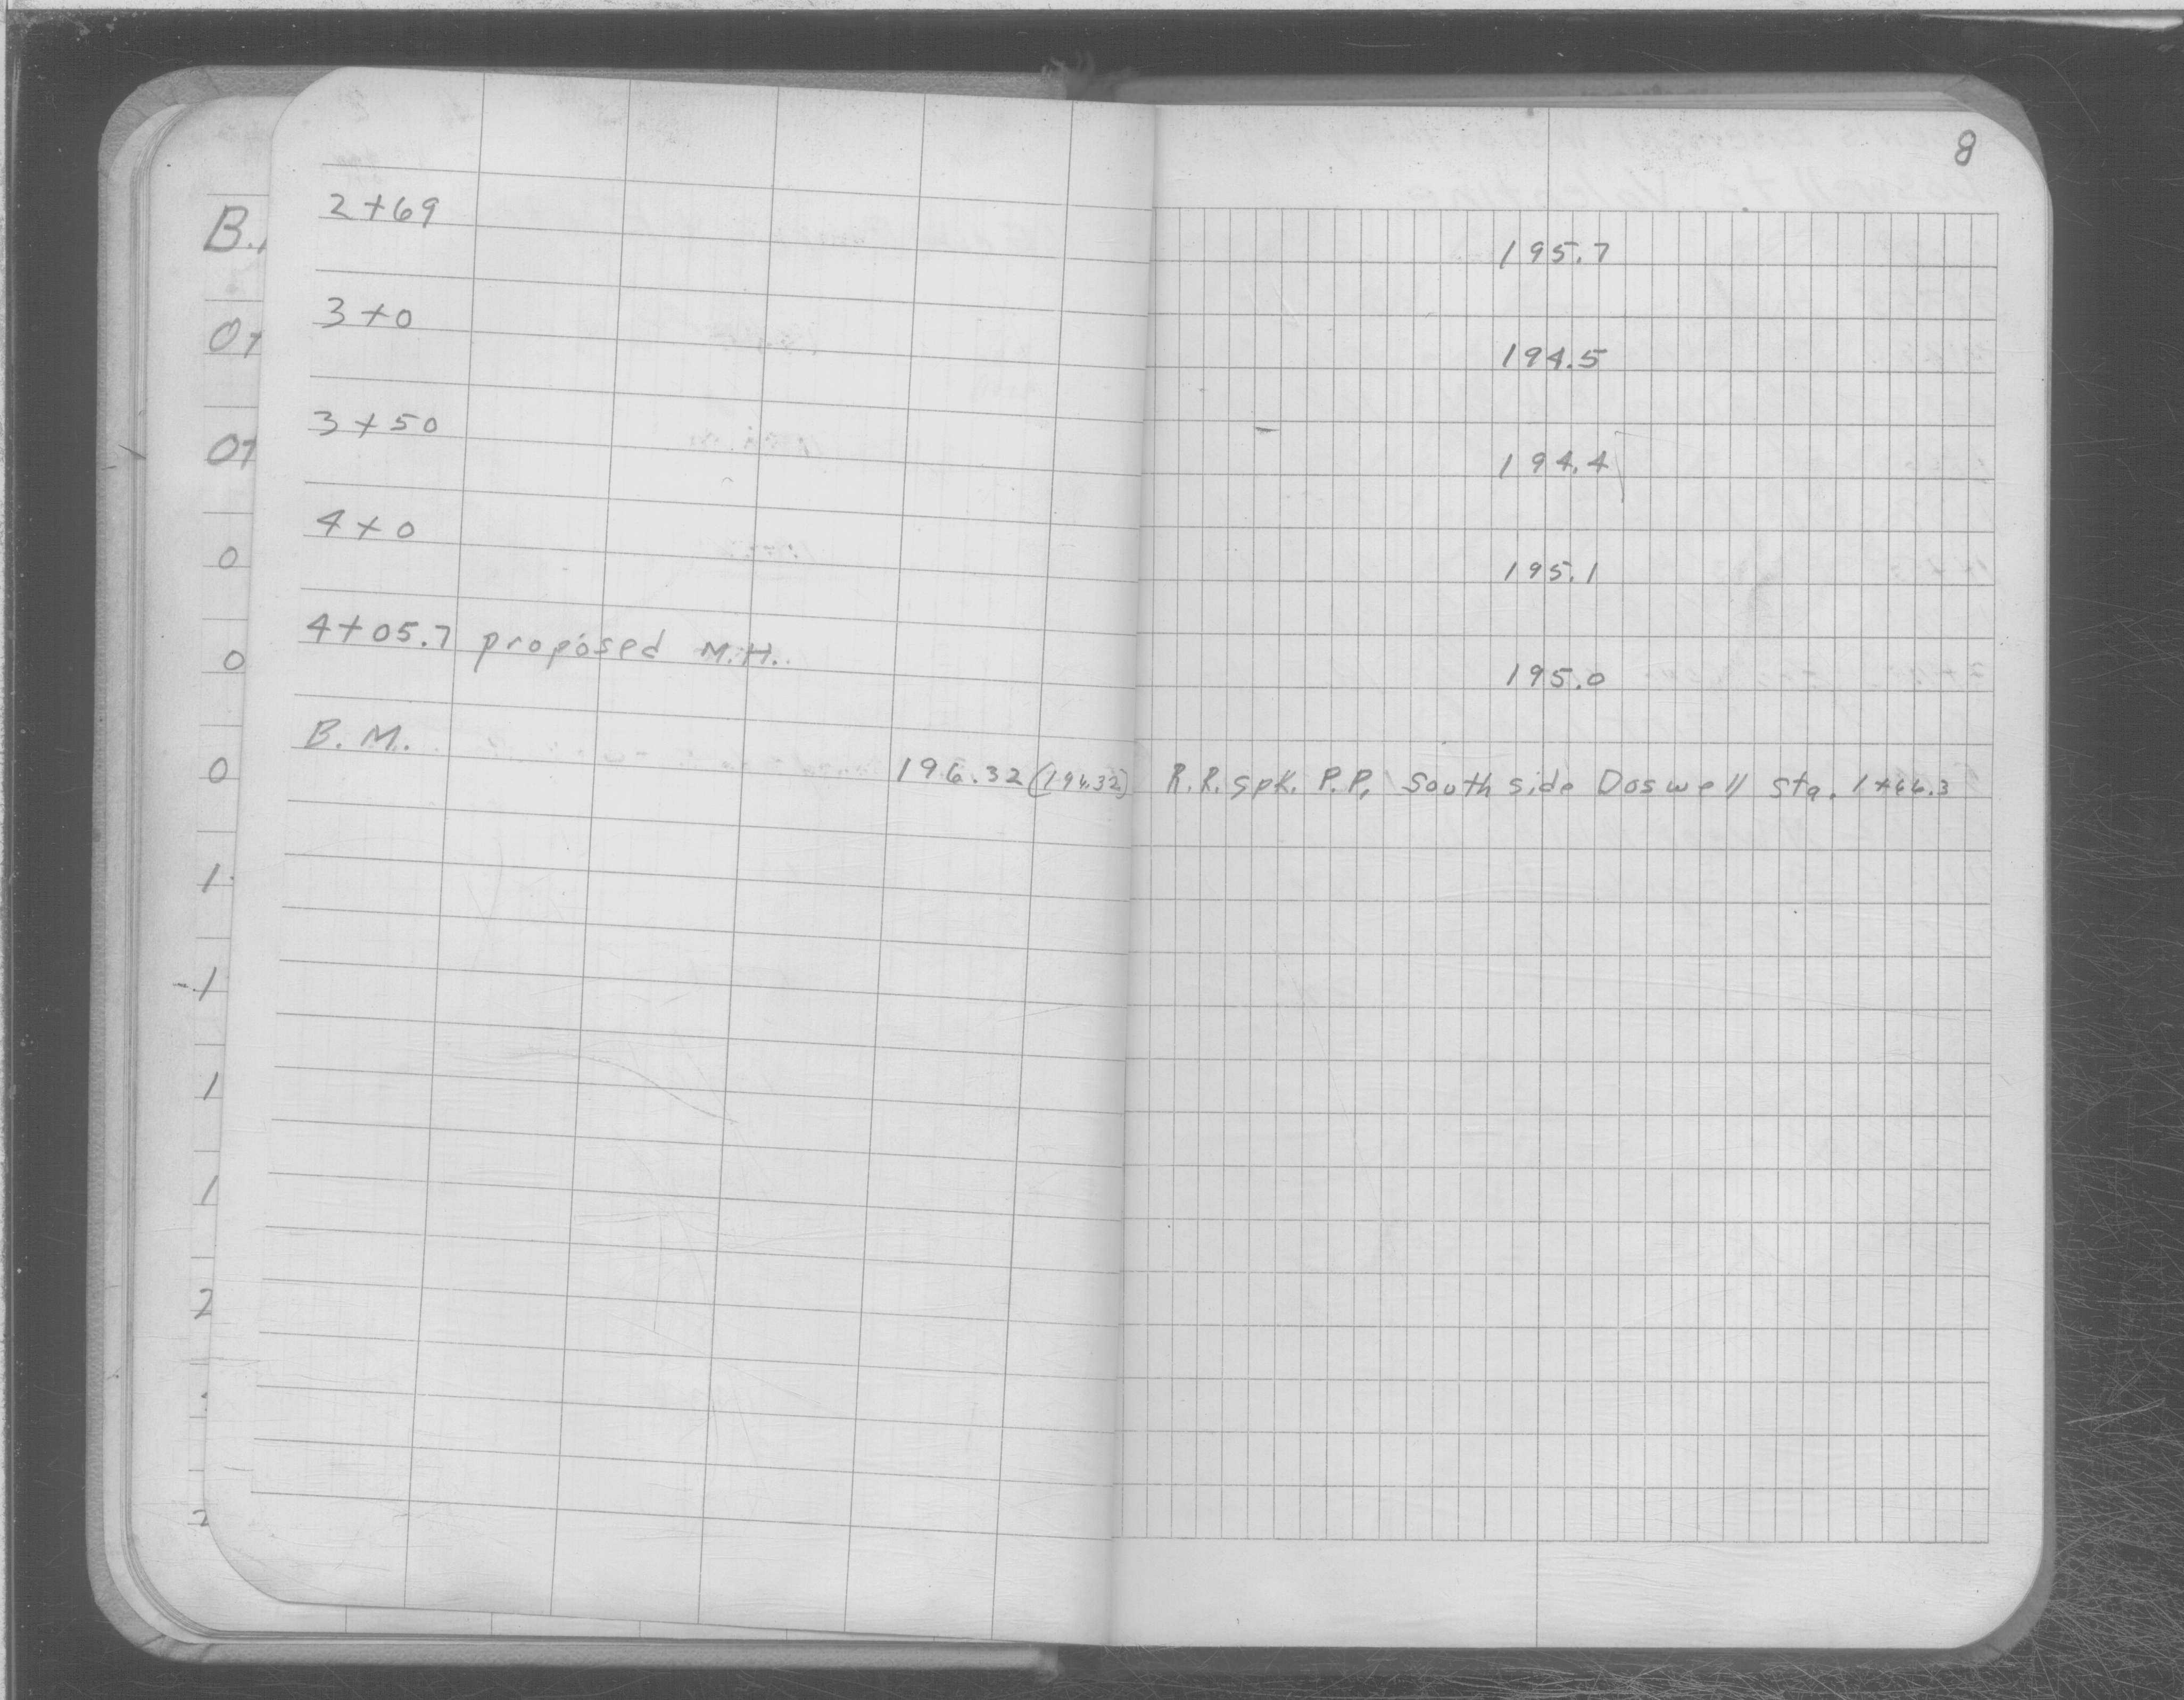 8
2+69 195.7
3+0 194.5
3+50 194.4
4+0 195.1
4+05.7 proposed M.H. 195.0
B.M. 196.32 (194.32) R.R. spk. P.P. South side Doswell sta. 1+66.3
B.
0+
0+
0
0
0
1
1
1
1
2
2